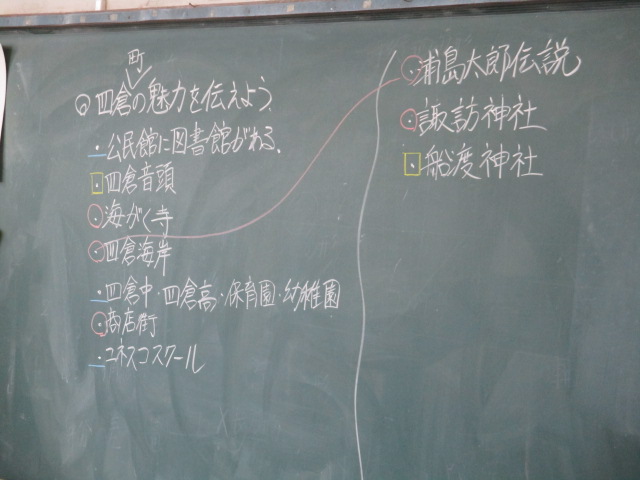 町
◎四倉の魅力を伝えよう
・公民館に図書館がある。
・四倉音頭
・海がく寺
・四倉海岸
・四倉中・四倉高・保育園・幼稚園
・商店街
・ユネスコスクール
・浦島太郎伝説
・諏訪神社
・船渡神社